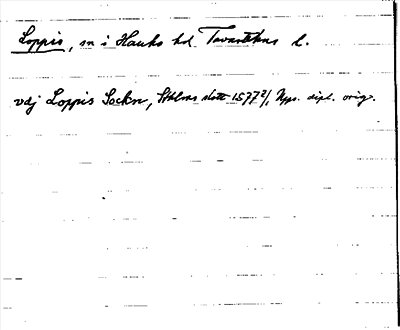 Loppis, sn i Hauho hd. Tavastehus l.
vdj Loppis Sockn, Sthlms slott 1577 2/1, Upps. dipl. orig.